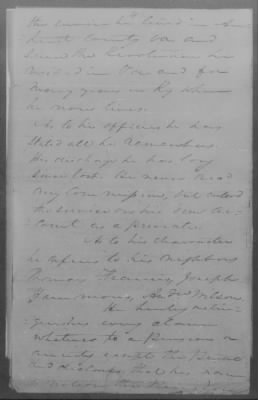 this service he lived in Am
herst County Va and
since the Revolution he
resided in Va and for
many years in Ky where
he now lives.
As to his officers he has
stated all he remembers.
His discharge he has long
since lost. He never had
any Commission, but entered
the service on his own ac
count as a private.
As to his character
he refers to his neighbors
Thomas Joseph
Wilson
He hereby relin
quishes every claim
whatever to a Pension or
annuity except the Present
and declares that his name
is not on the